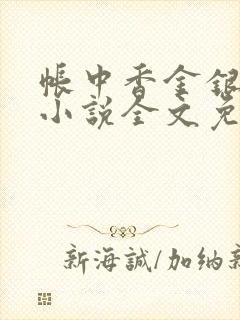 帳中香金銀
小說全文免
新海誠/加納新